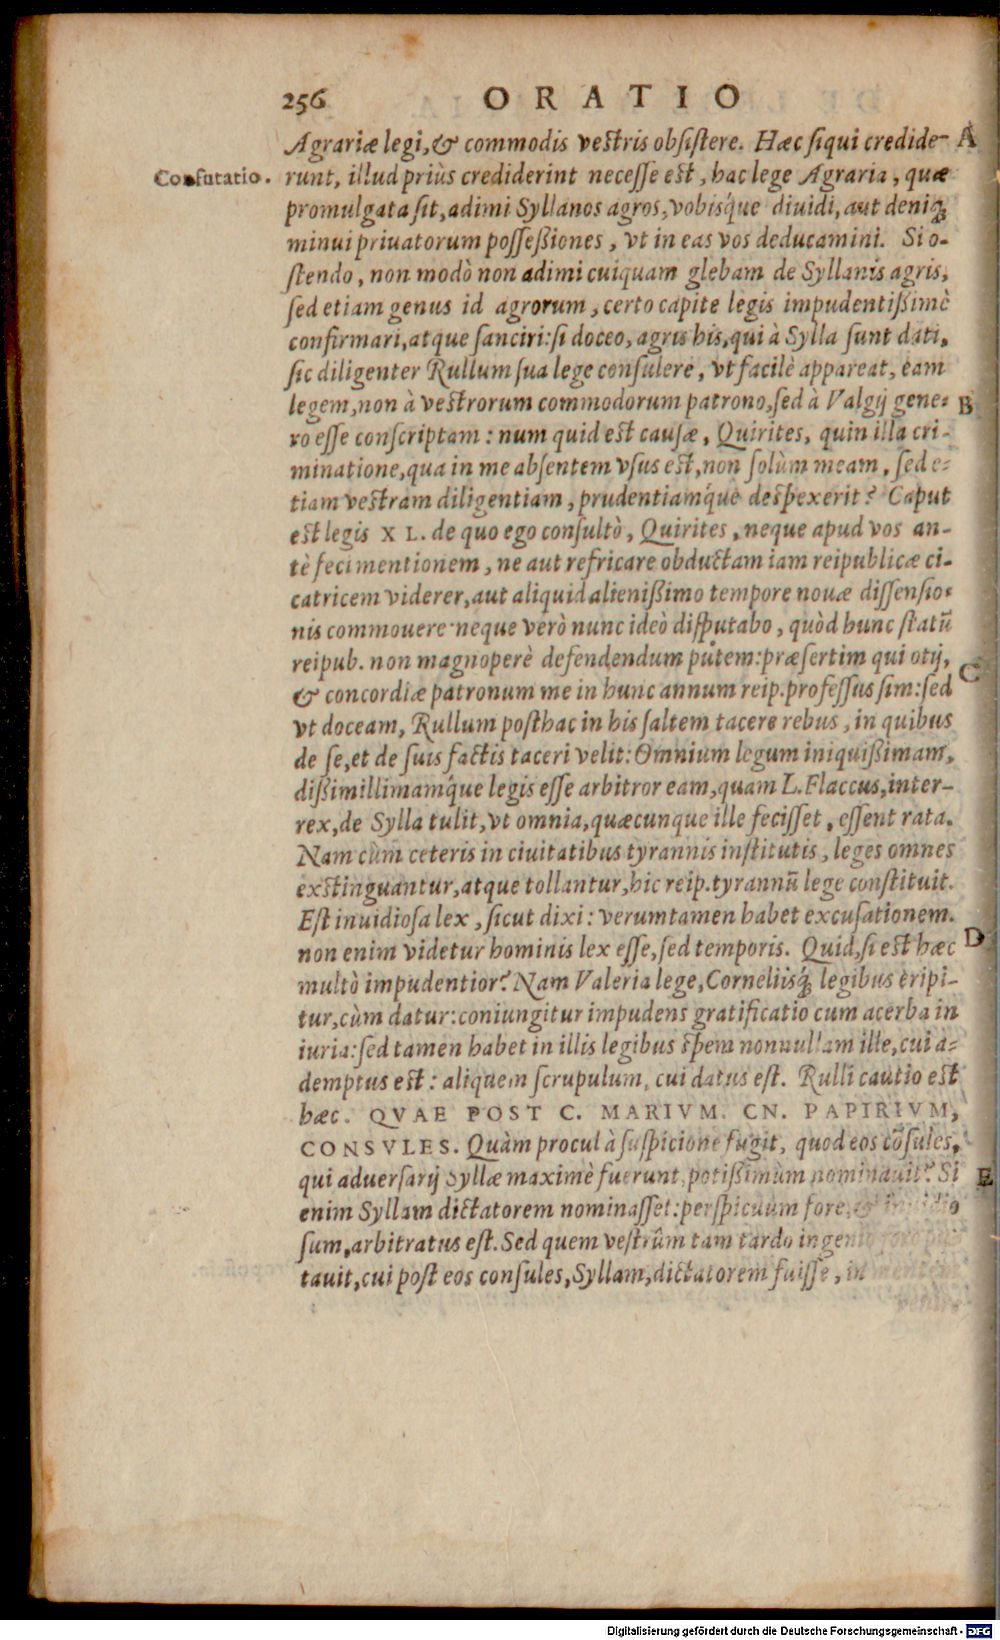 256 ORATIO
Agrariæ legi, & commodis vestris obsistere. Hæc siqui credide- A
Confutatio. runt, illud priùs crediderint necesse est, hac lege Agraria, quæ
promulgata sit, adimi Syllanos agros, vobisq́ue diuidi, aut deniq;
minui priuatorum possessiones, vt in eas vos deducamini. Si o-
stendo, non modò non adimi cuiquam glebam de Syllanis agris,
sed etiam genus id agrorum, certo capite legis impudentissimè
confirmari, atque sanciri: si doceo, agris his, qui à Sylla sunt dati,
sic diligenter Rullum sua lege consulere, vt facilè appareat, eam
legem, non à vestrorum commodorum patrono, sed à Valgij gene- B
ro esse conscriptam: num quid est causæ, Quirites, quin illa cri-
minatione, qua in me absentem vsus est, non solùm meam, sed e-
tiam vestram diligentiam, prudentiamq́ue despexerit? Caput
est legis XL. de quo ego consultò, Quirites, neque apud vos an-
tè feci mentionem, ne aut refricare obductam iam reipublicæ ci-
catricem viderer, aut aliquid alienissimo tempore nouæ dissensio-
nis commouere: neque verò nunc ideò disputabo, quòd hunc statū
reipub. non magnoperè defendendum putem: præsertim qui otij, C
& concordiæ patronum me in hunc annum reip. professus sim: sed
vt doceam, Rullum posthac in his saltem tacere rebus, in quibus
de se, et de suis factis taceri velit: Omnium legum iniquissimam,
dissimillimamq́ue legis esse arbitror eam, quam L. Flaccus, inter-
rex, de Sylla tulit, vt omnia, quæcunque ille fecisset, essent rata.
Nam cùm ceteris in ciuitatibus tyrannis institutis, leges omnes
exstinguantur, atque tollantur, hic reip. tyrannū lege constituit.
Est inuidiosa lex, sicut dixi: verumtamen habet excusationem.
non enim videtur hominis lex esse, sed temporis. Quid, si est hæc D
multò impudentior? Nam Valeria lege, Corneliisq́; legibus eripi-
tur, cùm datur: coniungitur impudens gratificatio cum acerba in
iuria: sed tamen habet in illis legibus spem nonnullam ille, cui a-
demptus est: aliquem scrupulum, cui datus est. Rulli cautio est
hæc. QVAE POST C. MARIVM. CN. PAPIRIVM,
CONSVLES. Quàm procul à suspicione fugit, quod eos cōsules,
qui aduersarij Syllæ maximè fuerunt, potissimùm nominauit? Si E
enim Syllam dictatorem nominasset: perspicuum fore, & inuidio
sum, arbitratus est. Sed quem vestrûm tam tardo ingenio
tauit, cui post eos consules, Syllam, dictatorem fuisse, in
Digitalisierung gefördert durch die Deutsche Forschungsgemeinschaft - DFG